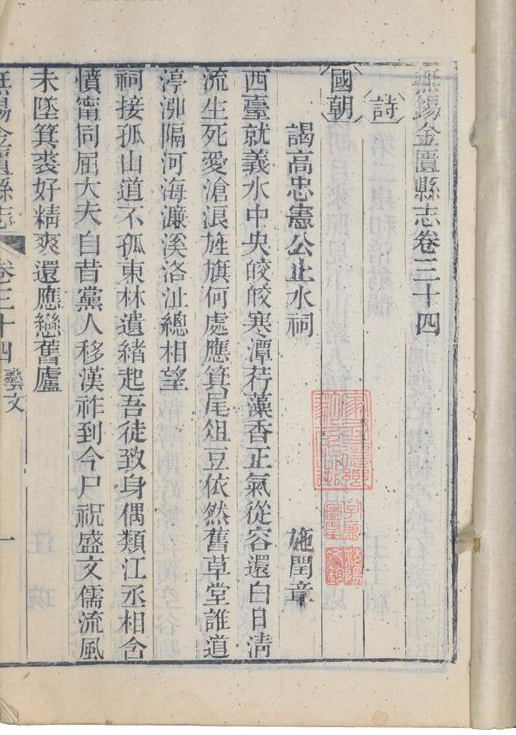 無錫金匱縣志卷三十四
詩
國朝
謁高忠憲公止水祠 施閏章
西臺就義水中央皎皎寒潭荇藻香正氣從容還白日淸
流生死愛滄浪旌旗何處應箕尾俎豆依然舊草堂誰道
渟泖隔河海濂溪洛沚總相望
祠接孤山道不孤東林遺緖起吾徒致身偶類江丞相含
憤甯同屈大夫自昔黨人移漢祚到今尸祝盛文儒流風
未墜箕裘好精爽還應戀舊廬
無錫金匱縣志 卷三十四 藝文 一